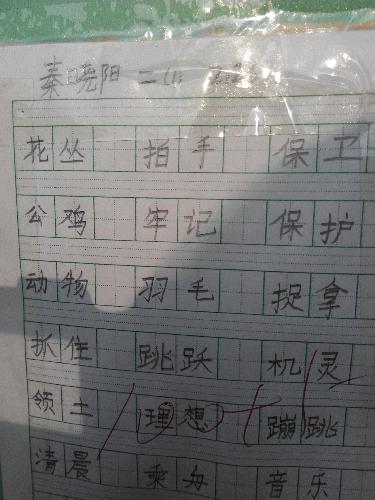 秦晓阳 二
花丛 拍手 保卫
公鸡 牢记 保护
动物 羽毛 捉拿
抓住 跳跃 机灵
领土 理想 蹦跳
清晨 乘舟 音乐